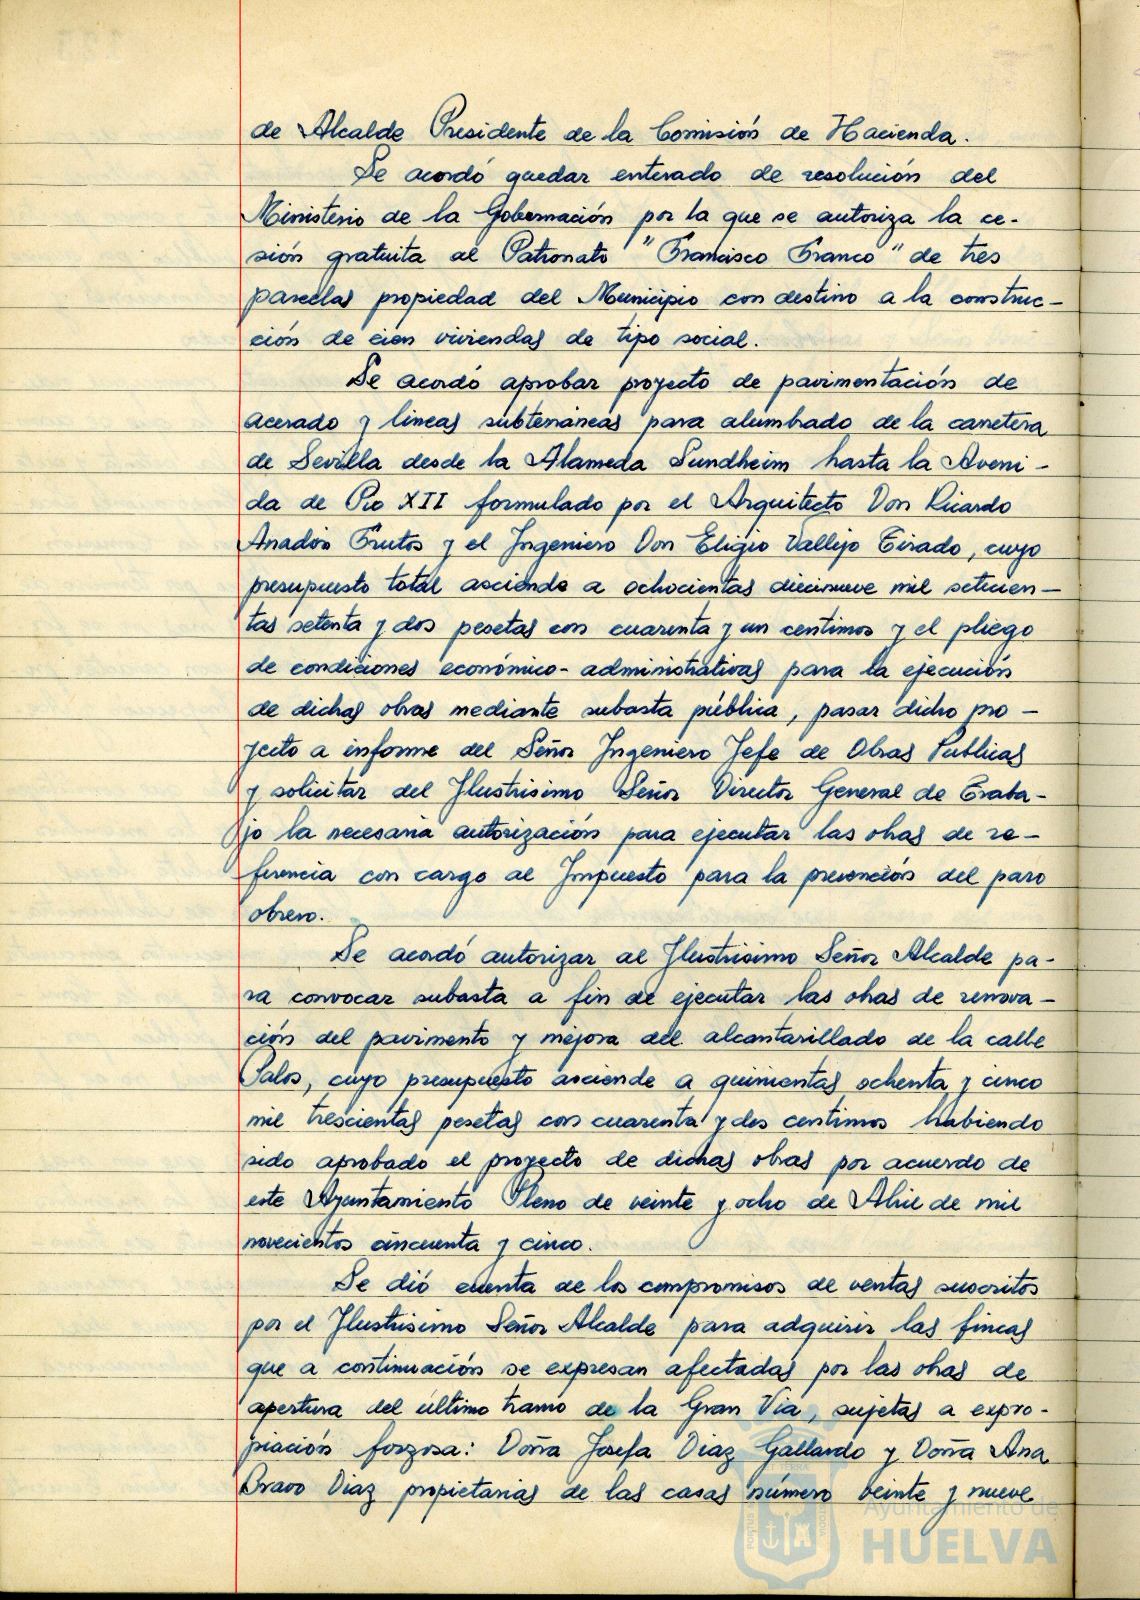 de Alcalde Presidente de la Comisión de Hacienda.
Se acordó quedar enterado de resolución del
Ministerio de la Gobernación por la que se autoriza la ce-
sión gratuita al Patronato "Francisco Franco" de tres
parcelas propiedad del Municipio con destino a la construc-
ción de cien viviendas de tipo social.
Se acordó aprobar proyecto de pavimentación de
acerado y lineas subterráneas para alumbrado de la carretera
de Sevilla desde la Alameda Sundheim hasta la Aveni-
da de Pio XII formulado por el Arquitecto Don Ricardo
Anadón Frutos y el Ingeniero Don Eligio Vallejo Tirado, cuyo
presupuesto total asciende a ochocientas diecinueve mil setecien-
tas setenta y dos pesetas con cuarenta y un centimos y el pliego
de condiciones económico-administrativas para la ejecución
de dichas obras mediante subasta pública, pasar dicho pro-
yecto a informe del Señor Ingeniero Jefe de Obras Publicas
y solicitar del Ilustrisimo Señor Director General de Traba-
jo la necesaria autorización para ejecutar las obras de re-
ferencia con cargo al Impuesto para la prevención del paro
obrero.
Se acordó autorizar al Ilustrisimo Señor Alcalde pa-
ra convocar subasta a fin de ejecutar las obras de renova-
ción del pavimento y mejora del alcantarillado de la calle
Palos, cuyo presupuesto asciende a quinientas ochenta y cinco
mil trescientas pesetas con cuarenta y dos centimos habiendo
sido aprobado el proyecto de dichas obras por acuerdo de
este Ayuntamiento Pleno de veinte y ocho de Abril de mil
novecientos cincuenta y cinco.
Se dió cuenta de los compromisos de ventas suscritos
por el Ilustrisimo Señor Alcalde para adquirir las fincas
que a continuación se expresan afectadas por las obras de
apertura del último tramo de la Gran Via, sujetas a expro-
piación forzosa: Doña Josefa Diaz Gallardo y Doña Ana
Bravo Diaz propietarias de las casas número veinte y nueve
Ayuntamiento de
HUELVA